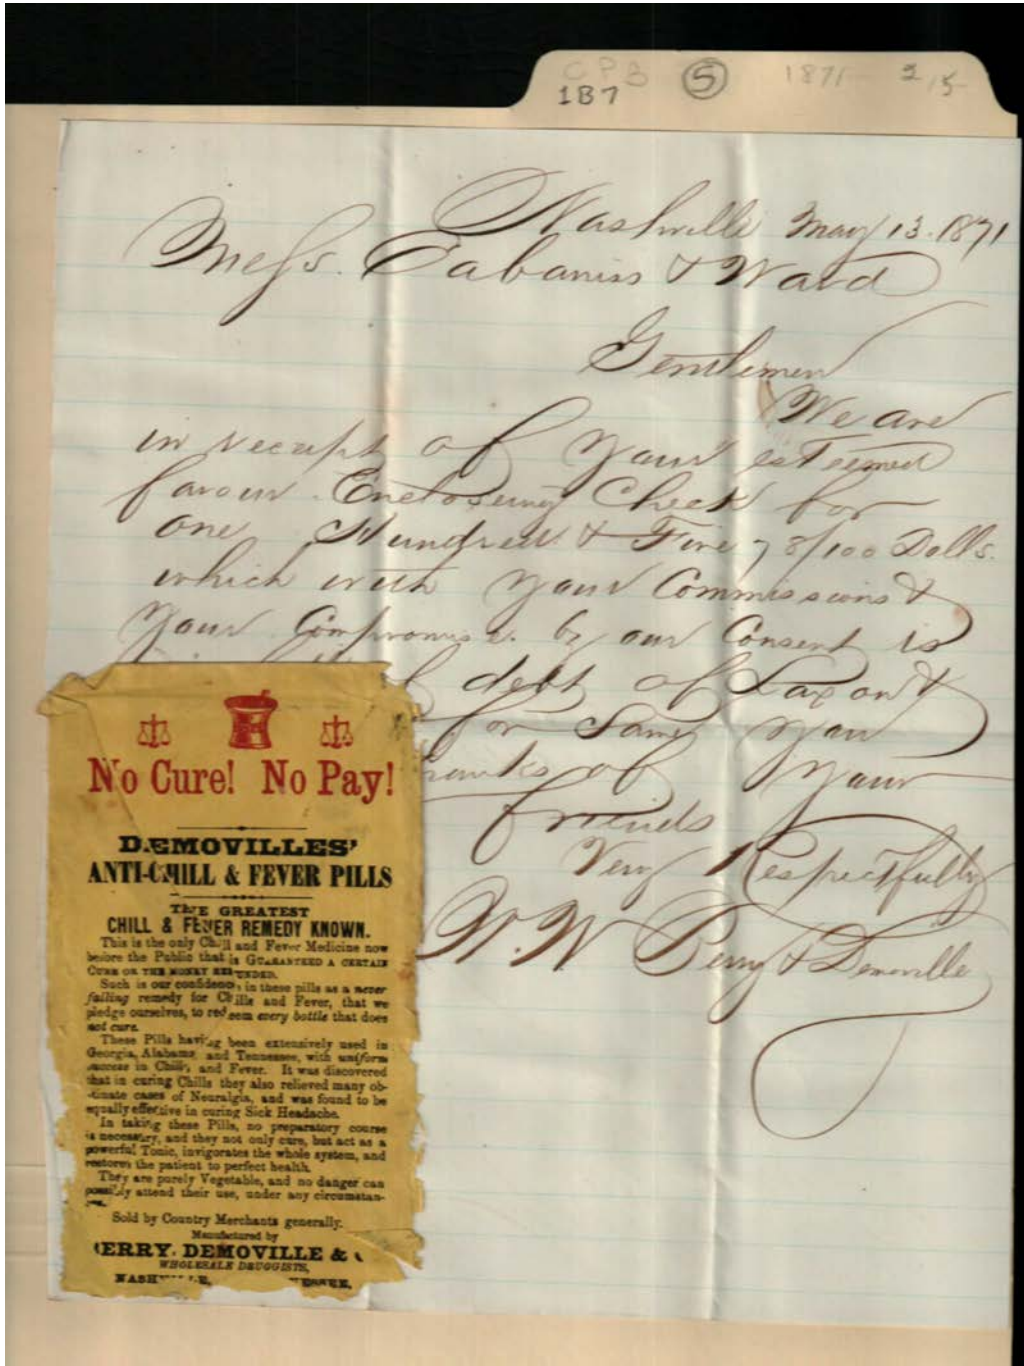 CPB
1B7
5
1871
Nashville May 13. 1871
Messs. Cabaniss & Ward
Gentlemen
We are
in receipt of your esteemed
favour Enclosing Check for
one Hundred & Five 78/100 Dolls.
which with your Commissions &
your Compromise by our Consent is
of debt of Saxon &
for Same you
thanks of your
friends
Very Respectfully
W. W Berry & Demoville
No Cure! No Pay!
DEMOVILLES'
ANTI-CHILL & FEVER PILLS
THE GREATEST
CHILL & FEVER REMEDY KNOWN.
This is the only Chill and Fever Medicine now
before the Public that is GUARANTEED A CERTAIN
CURE OR THE MONEY REFUNDED.
Such is our confidence in these pills as a never
failing remedy for Chills and Fever, that we
pledge ourselves, to redeem every bottle that does
not cure.
These Pills having been extensively used in
Georgia, Alabama and Tennessee, with uniform
success in Chills and Fever. It was discovered
that in curing Chills they also relieved many ob-
stinate cases of Neuralgia, and was found to be
equally effective in curing Sick Headache.
In taking these Pills, no preparatory course
is necessary, and they not only cure, but act as a
powerful Tonic, invigorates the whole system, and
restores the patient to perfect health.
They are purely Vegetable, and no danger can
possibly attend their use, under any circumstan-
Sold by Country Merchants generally.
Manufactured by
BERRY, DEMOVILLE &
WHOLESALE DRUGGISTS,
NASHVILLE, TENNESSEE.